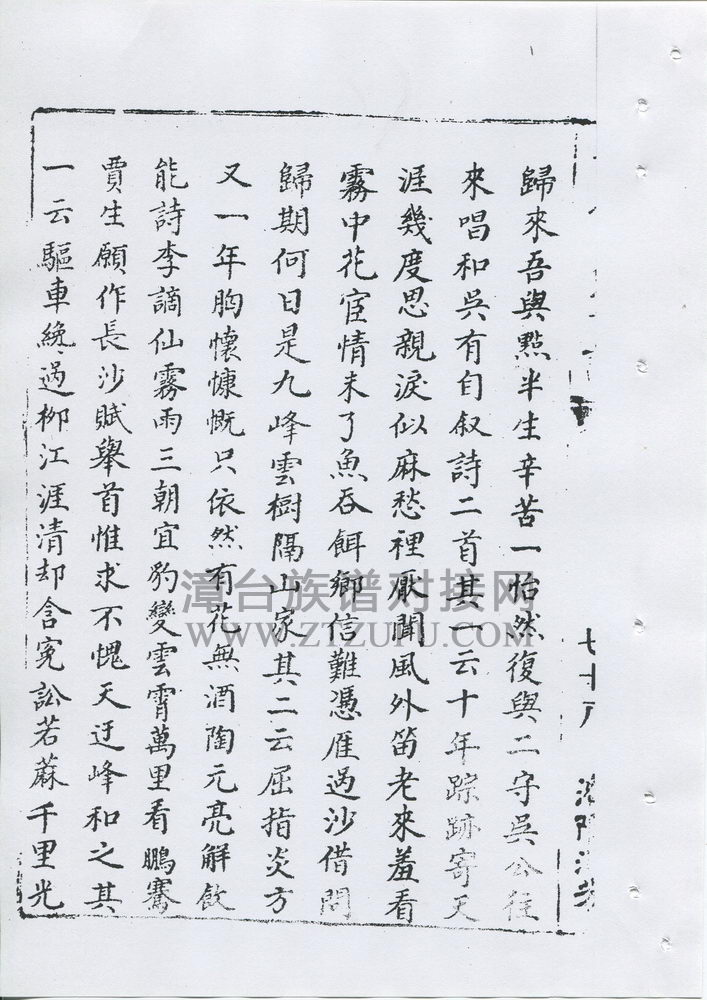 歸來吾與㸃半生辛苦一怡然復與二守吳公往
來唱和吳有自叙詩二首其一云十年踪跡寄天
涯幾度思親淚似麻愁裡厭聞風外笛老來羞看
霧中花宦情未了魚吞餌鄉信難憑雁過沙借問
歸期何日是九峰雲樹隔山家其二云屈指炎方
又一年胸懷慷慨只依然有花無酒陶元亮解飲
能詩李謫仙霧雨三朝宜豹變雲霄萬里看鵬騫
賈生願作長沙賦舉首惟求不愧天迂峰和之其
一云驅車纔過柳江涯清却含冤訟若蔴千里光
七十八
漳台族谱对接网
WWW.ZTZUPU.COM